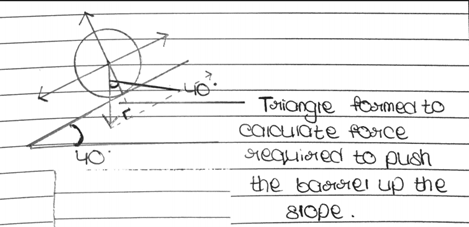 40°
r
40°
Triangle formed to
calculate force
required to push
the barrel up the
slope.